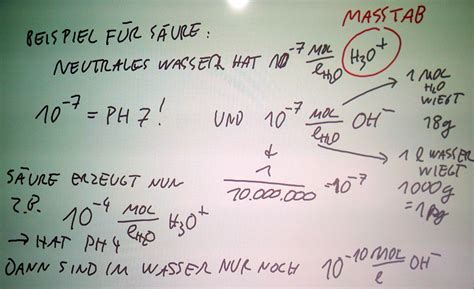 MASSTAB
BEISPIEL FÜR SÄURE:
NEUTRALES WASSER HAT 10⁻⁷ MOL/ℓH₂O H₃O⁺
10⁻⁷ = PH 7!
UND 10⁻⁷ MOL/ℓH₂O OH⁻
1 MOL
H₂O
WIEGT
18g
1/10.000.000 = 10⁻⁷
1 ℓ WASSER
WIEGT
1000g
SÄURE ERZEUGT NUN
Z.B. 10⁻⁴ MOL/ℓH₂O H₃O⁺
→ HAT PH 4
DANN SIND IM WASSER NUR NOCH 10⁻¹⁰ MOL/ℓ OH⁻